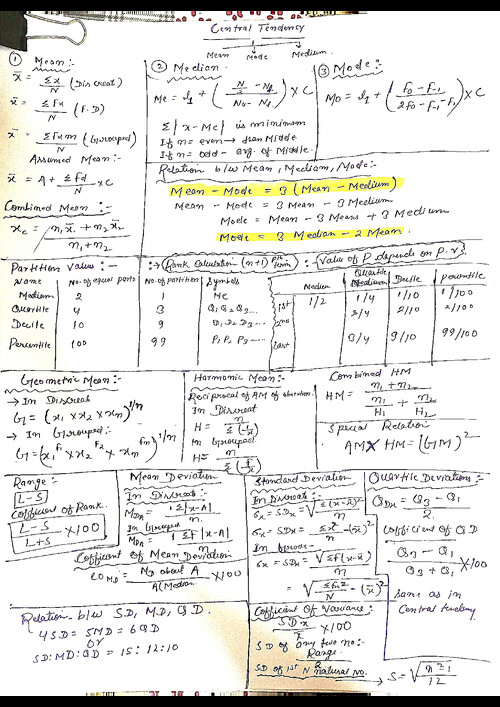 Central Tendency
Mean Mode Medium.
① Mean :-
x̄ = Σx/N (Discreat)
x̄ = Σfx/N (F.D)
x̄ = Σfxm/N (Grouped)
Assumed Mean :-
x̄ = A + Σfd/N × C
Combined Mean :-
x̄c = n₁x̄₁ + n₂x̄₂ / n₁+n₂
② Median
Me = l₁ + (N/2 - N₁ / N₀ - N₁) × C
Σ|x - Me| is minimum
If n = even → Middle
If n = odd - avg. of Middle.
③ Mode :-
Mo = l₁ + (F₀ - F₋₁ / 2F₀ - F₋₁ - F₁) × C
Relation b/w Mean, Medium, Mode :-
Mean - Mode = 3 (Mean - Medium)
Mean - Mode = 3 Mean - 3 Medium
Mode = Mean - 3 Means + 3 Medium
Mode = 3 Median - 2 Mean.
Partition Value :-
Name No. of equal parts No. of partition Symbols
Medium 2 1 Me
Quartile 4 3 Q₁ Q₂ Q₃...
Decile 10 9 D₁, D₂ D₃....
Percentile 100 99 P₁ P₂ P₃....
:→ (Rank Calculation (n+1) Pth term) :- (Value of P depends on P.V}.
Medium Quartile Medium Decile percentile
1st 1/2 1/4 1/10 1/100
2nd 2/4 2/10 2/100
Last 3/4 9/10 99/100
Geometric Mean :-
→ In Discreat
G = (x₁ × x₂ × xn)^1/n
→ In Grouped :
G = (x₁^F₁ × x₂^F₂ × xn^Fn)^1/n
Harmonic Mean :-
Reciprocal of AM of
In Discreat
H = n / Σ(1/x)
In Grouped
H = n / Σ(f/x)
Combined HM
HM = n₁+n₂ / n₁/H₁ + n₂/H₂
Special Relation
AM × HM = (GM)²
Range :-
L - S
Cofficient of Rank.
L - S / L + S × 100
Mean Deviation
In Discreat :-
MDA = 1 Σ|x-A| / n.
In Grouped
MDA = 1 Σf|x-A| / n
Cofficient of Mean Deviation
CO M.D = MD about A / A(Median × 100
Standard Deviation
In Discreat :-
σx = SDx = √Σ(x-x̄)² / n
σx = SDx = Σx² / n - (x̄)²
σx = SDx = √Σf(x-x̄) / n
= √Σfx² / N - (x̄)²
Quartile Deviations :-
QDx = Q₃ - Q₁ / 2
Cofficient of QD
Q₃ - Q₁ / Q₃ + Q₁ × 100
same as in
Central tendency
Relation b/w S.D, M.D, Q.D.
4SD = 5MD = 6QD
or
SD:MD:QD = 15:12:10
Cofficient Of Variance :-
SDx / x̄ × 100
SD of any two no :-
Range / 2
SD of 1st N natural No. → S = √n²-1 / 12